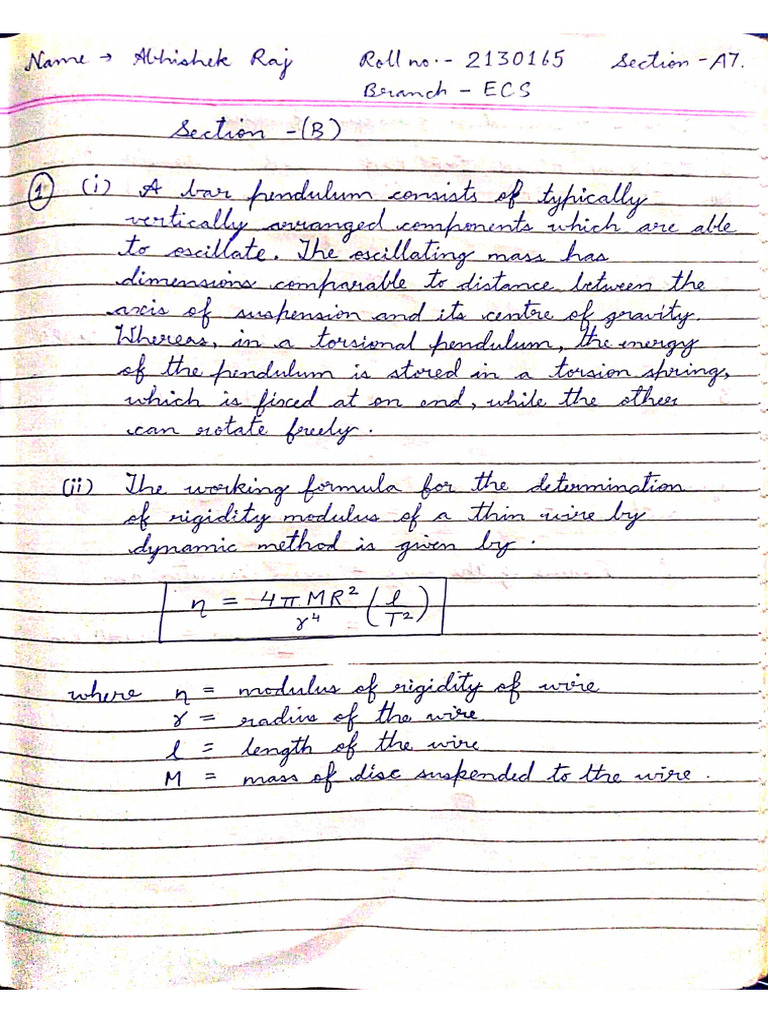 Name → Abhishek Raj Roll no.- 2130165 Section - A7.
Branch - ECS
Section -(B)
1 (i) A bar pendulum consists of typically
vertically arranged components which are able
to oscillate. The oscillating mass has
dimensions comparable to distance between the
axis of suspension and its centre of gravity.
Whereas, in a torsional pendulum, the energy
of the pendulum is stored in a torsion spring,
which is fixed at on end, while the other
can rotate freely.
(ii) The working formula for the determination
of rigidity modulus of a thin wire by
dynamic method is given by.
η = 4π MR²/r⁴ (l/T²)
where η = modulus of rigidity of wire
r = radius of the wire
l = length of the wire
M = mass of disc suspended to the wire.